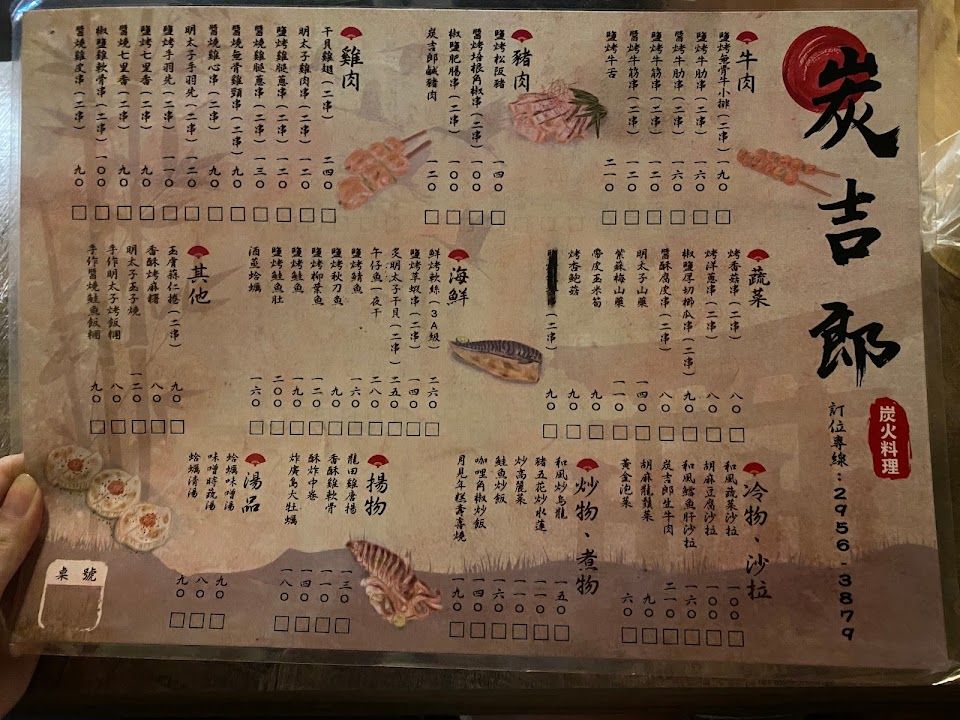 炭吉郎
炭火料理
訂位專線：2956-3879
牛肉
鹽烤無骨牛小排(二串)一九〇
鹽烤牛肋串(二串)一六〇
醬烤牛肋串(二串)一六〇
鹽烤牛筋串(二串)一二〇
醬烤牛筋串(二串)一二〇
鹽烤牛舌 二一〇
豬肉
鹽烤松阪豬 一四〇
醬烤培根角椒串(二串)一〇〇
椒鹽肥腸串(二串)一〇〇
炭吉郎鹹豬肉 一二〇
雞肉
干貝雞翅(二串)二四〇
明太子雞肉串(二串)一二〇
鹽烤雞腿蔥串(二串)一二〇
醬燒雞腿蔥串(二串)一三〇
醬燒無骨雞頸串(二串)九〇
醬燒雞心串(二串)九〇
明太子手羽先(二串)一二〇
鹽烤手羽先(二串)一一〇
鹽烤七里香(二串)九〇
醬燒七里香(二串)九〇
椒鹽雞軟骨串(二串)一〇〇
醬燒雞皮串(二串)九〇
蔬菜
烤香菇串(二串)八〇
烤洋蔥串(二串)八〇
椒鹽厚切櫛瓜串(二串)九〇
醬酥腐皮串(二串)八〇
明太子山藥 一四〇
紫蘇梅山藥 一一〇
帶皮玉米筍 九〇
烤杏鮑菇 九〇
(二串)九〇
海鮮
鮮烤軟絲(3A級)二六〇
鹽烤草蝦串(二串)一四〇
炙明太子干貝(二串)二五〇
午仔魚一夜干 二八〇
鹽烤鯖魚 一六〇
鹽烤秋刀魚 九〇
鹽烤柳葉魚 一二〇
鹽烤鮭魚 一九〇
鹽烤鮭魚肚 二〇〇
酒蒸蛤蠣 一六〇
其他
(二串)九〇
香酥烤麻糬 八〇
明太子玉子燒 一二〇
手作明太子烤飯糰 八〇
手作醬燒鮭魚飯糰 九〇
冷物、沙拉
和風蔬菜沙拉 一〇〇
胡麻豆腐沙拉 一〇〇
和風鱈魚肝沙拉 一六〇
炭吉郎生牛肉 二一〇
胡麻龍鬚菜 九〇
黃金泡菜 六〇
炒物、煮物
和風炒烏龍 一五〇
豬五花炒水蓮 一二〇
炒高麗菜 一一〇
鮭魚炒飯 一六〇
咖哩角椒炒飯 一四〇
月見年糕壽喜燒 一九〇
揚物
龍田雞唐揚 一三〇
香酥雞軟骨 一一〇
酥炸中卷 一四〇
炸廣島大牡蠣 一八〇
湯品
蛤蠣味噌湯 九〇
味噌時蔬湯 八〇
蛤蠣清湯 九〇
桌號